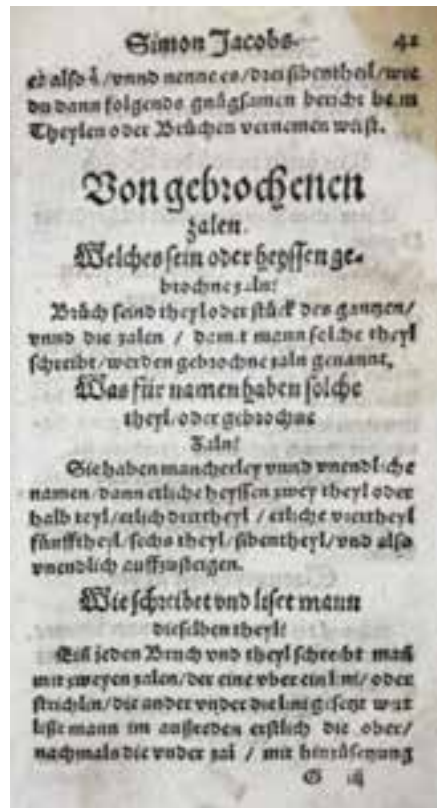 Simon Jacobs. 42
es also /vnnd nenne es/drei sibentheil/wie
du dann folgends gnůgsamen bericht beim
Theylen oder Brüchen vernemen wirst.
Von gebrochenen
zalen.
Welches sein oder heyssen ge-
brochne zaln?
Brüch seind theyl oder stück des gantzen/
vnnd die zalen / damit mann solche theyl
schreibt/werden gebrochne zaln genannt.
Was für namen haben solche
theyl/oder gebrochne
Zaln?
Sie haben mancherley vnnd vnendliche
namen/dann etliche heyssen zwey theyl oder
halb teyl/etlich drittheyl / etliche viertheyl
fünfftheyl/sechs theyl/sibentheyl/vnd also
vnendlich auffzusteigen.
Wie schreibet vnd liset mann
dieselben theyl?
Ein jeden Bruch vnd theyl schreibt mañ
mit zweyen zalen/der eine vber ein lini/oder
strichlin/die ander vnder die lini gesetzt wirt
liset mann im außreden erstlich die ober/
nachmals die vnder zal / mit hinzůsetzung
G iij